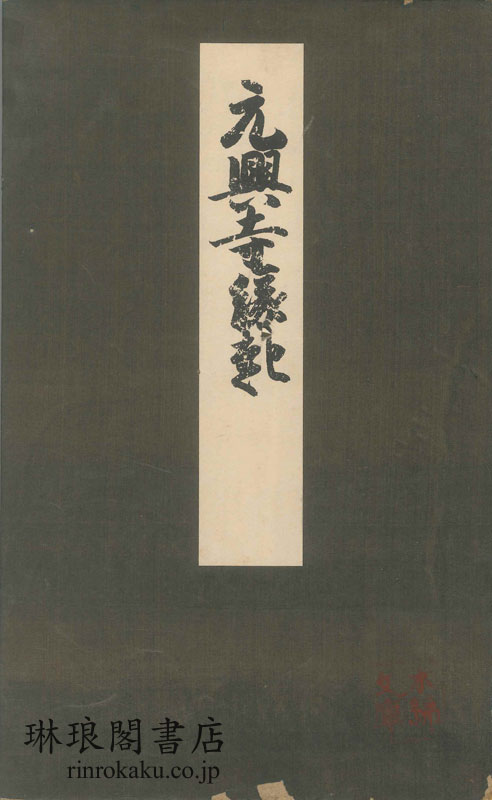 元興寺縁起
琳琅閣書店
rinrokaku.co.jp